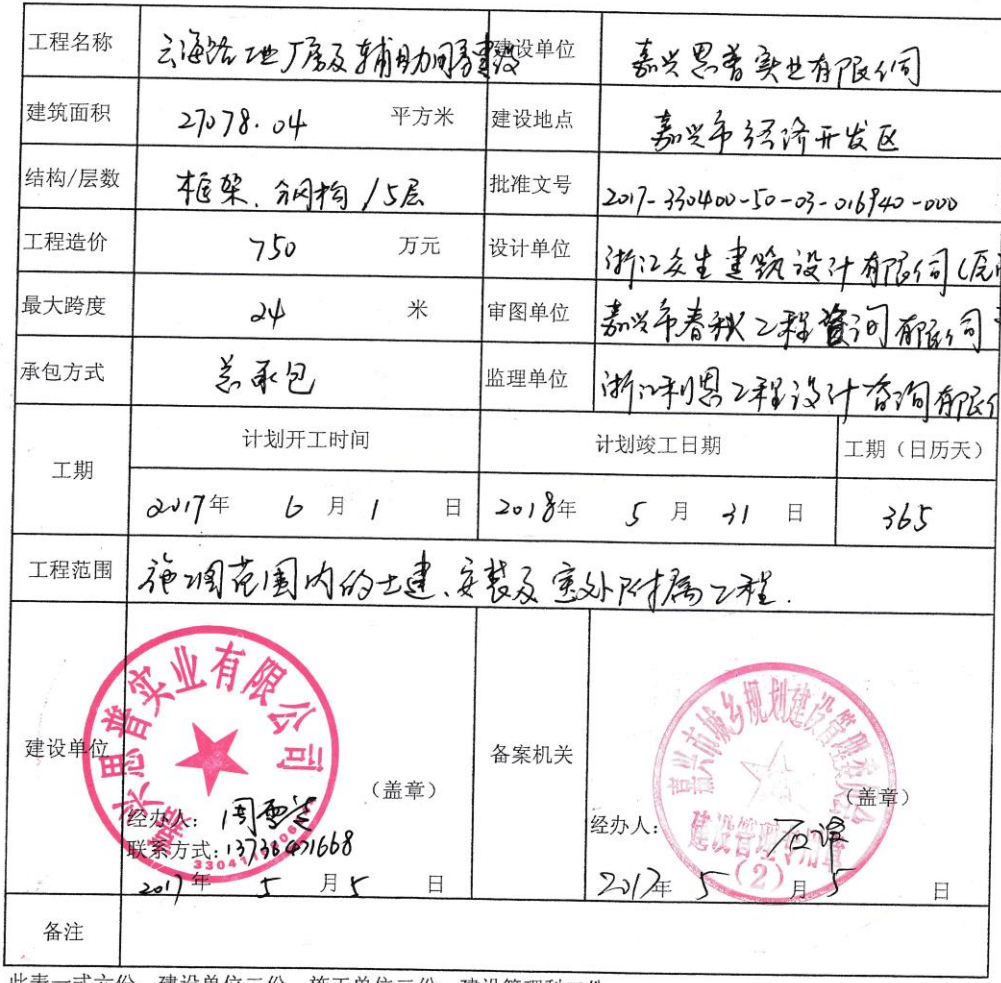 工程名称 云海路地厂房及辅助用房建设 建设单位 嘉兴思普实业有限公司
建筑面积 27078.04 平方米 建设地点 嘉兴市经济开发区
结构/层数 框架、钢构/5层 批准文号 2017-330400-50-03-016940-000
工程造价 750 万元 设计单位 浙江众生建筑设计有限公司(
最大跨度 24 米 审图单位 嘉兴市春秋工程咨询有限公司
承包方式 总承包 监理单位 浙江利恩工程设计咨询有限
工期 计划开工时间 计划竣工日期 工期（日历天）
2017年 6月1日 2018年 5月31日 365
工程范围 施工图范围内的土建、安装及室外附属工程.
嘉兴思普实业有限公司
嘉兴市城乡规划建设管理委员会
建设管理专用章
(2)
建设单位 （盖章） 备案机关 （盖章）
经办人: 周雪 经办人:
联系方式: 13736471668
2017年 5月5日 2017年 5月5日
备注
此表一式六份，建设单位二份，施工单位二份，建设管理科二份